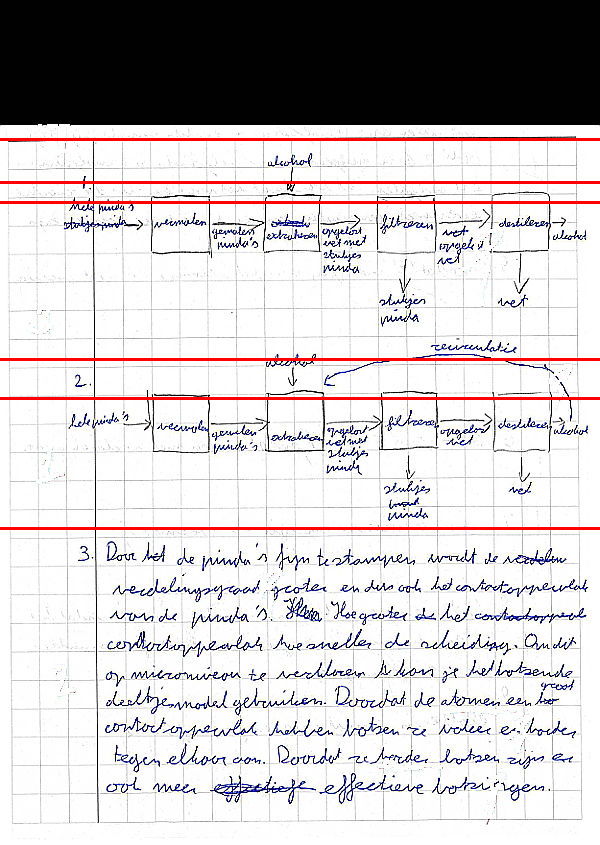 alcohol
1.
hele pinda's
vermalen
gemalen pinda's
extraheren
opgelost vet met stukjes pinda
filtreren
vet opgelost vet
destilleren
alcohol
stukjes pinda
vet
recirculatie
alcohol
2.
hele pinda's
vermalen
gemalen pinda's
extraheren
opgelost vet met stukjes pinda
filtreren
opgelost vet
destilleren
alcohol
stukjes
pinda
vet
3. Door de pinda's fijn te stampen wordt de
verdelingsgraad groter en dus ook het contactoppervlak
van de pinda's. Hoe groter het
contactoppervlak hoe sneller de scheiding. Om dit
op microniveau te verklaren kan je het botsende
deeltjesmodel gebruiken. Doordat de atomen een groot
contactoppervlak hebben botsen ze vaker en harder
tegen elkaar aan. Doordat ze harder botsen zijn er
ook meer effectieve botsingen.